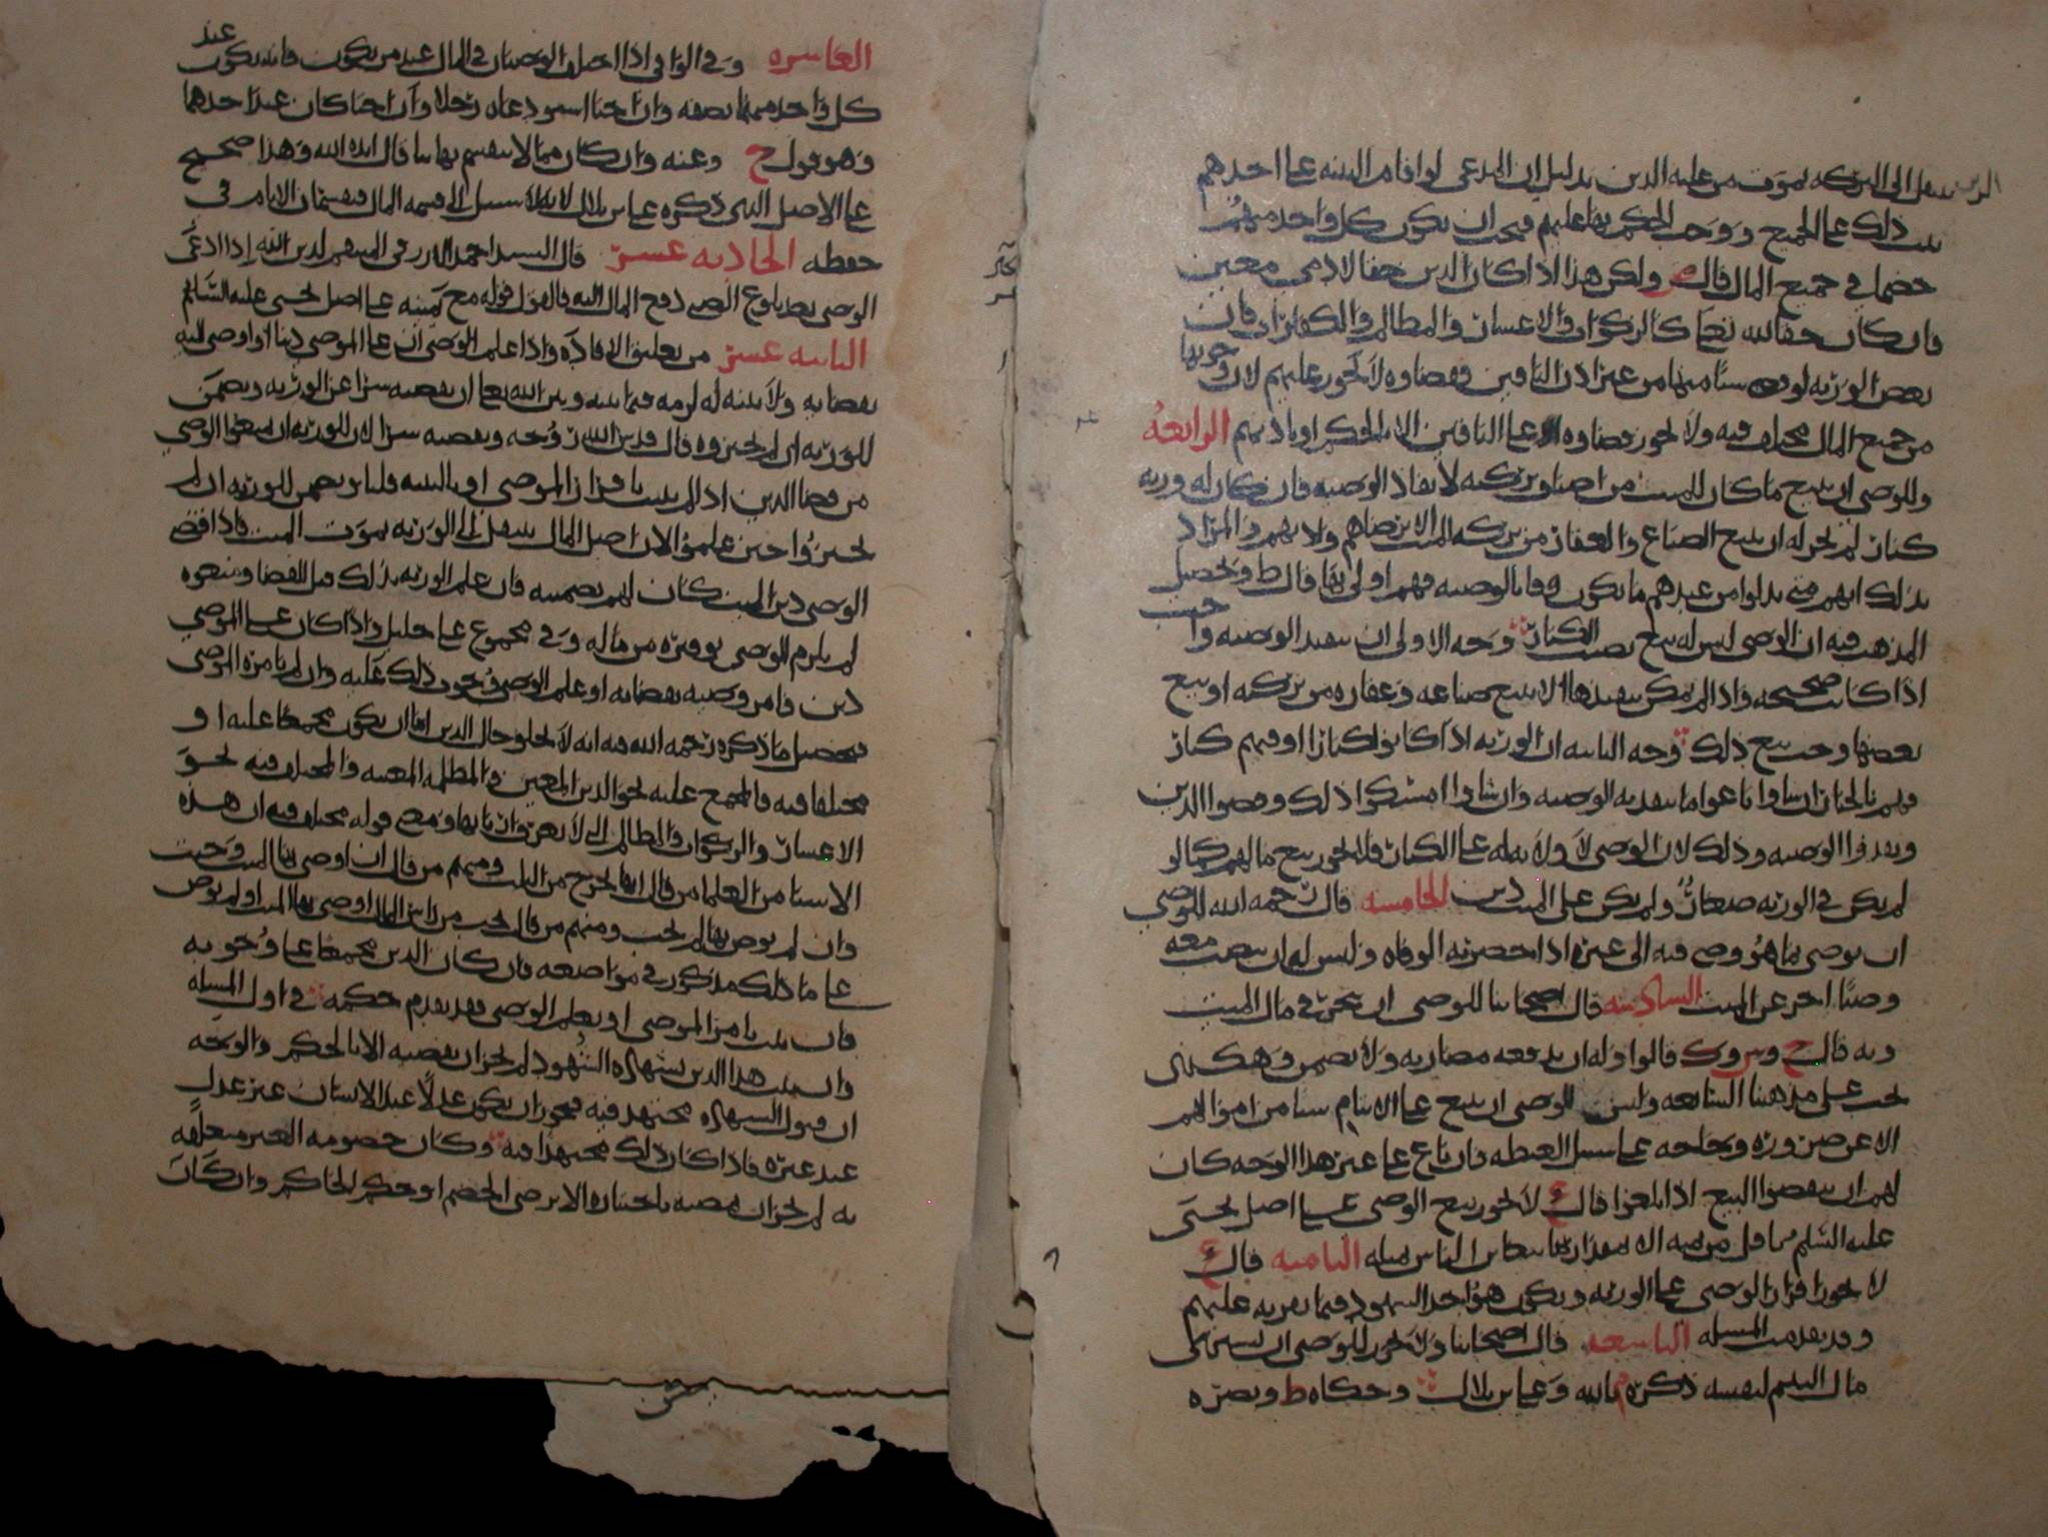 الدين ينتقل إلى التركه بموت من عليه الدين بدليل ان المدعي لو اقام البينه على احدهم
ثبت ذلك على الجميع ووجب الحكم بها عليهم فيجب ان يكون كل واحد منهم
خصما في جميع المال قال ولكن هذا اذا كان الدين حقا لادمي معين
فان كان حقا لله تعالى كالزكوات والاعشار والمظالم والكفارات فان
بعض الورثه لو شيئا منها من غير اذن الباقين فقضاوه لا يجوز عليهم لان وجوبها
من جميع المال مختلف فيه ولا يجوز قضاوه على الباقين الا بالحكم او باذنهم الرابعه
وللوصي ان يبيع ما كان للميت من اصناف تركته لانفاذ الوصيه فان كان له ورثه
كبار لم يجز له ان يبيع الضياع والعقار من تركه الميت الا برضاهم ولا بهم والمراد
بذلك انهم متى بذلوا من عندهم ما يكون وفا بالوصيه فهم اولى بها قال ط وتحصيل
المذهب فيه ان الوصي ليس له بيع نصيب الكبار وجه الاولى ان تنفيذ الوصيه واجب
اذا كانت صحيحه واذا لم يمكن تنفيذها الا ببيع ضياعه وعقاره من تركته او بيع
بعضها وجب بيع ذلك وجه الثانيه ان الورثه اذا كانوا كبارا او فيهم كبار
فهم بالخيار ان شاوا باعوا ما تنفذ به الوصيه وان شاوا امسكوا ذلك وقضوا الدين
ونفذوا الوصيه وذلك لان الوصي لا ولايه له على الكبار فلا يجوز بيع مالهم كما لو
لم يكن في الورثه صغار ولم يكن على الميت دين الخامسه قال رحمه الله للوصي
ان يوصي بما هو وصي فيه الى غيره اذا حضرته الوفاه وليس له ان ينصب معه
وصيا اخر عن الميت السادسه قال اصحابنا للوصي ان يتجر في مال الميت
وبه قال ح وش وك قالوا وله ان يدفعه مضاربه ولا يضمن وهكذى
يجب على مذهبنا السابعه وليس للوصي ان يبيع على الايتام شيا من اموالهم
الا عن ضروره وبحاجه على سبيل الغبطه فان باع على غير هذا الوجه كان
لهم ان ينقضوا البيع اذا بلغوا قال ع لا يجوز بيع الوصي على اصل يحيى
عليه السلم بما قل من قيمه الا بمقدار ما يتغابن الناس بمثله الثامنه قال ع
لا يجوز اقرار الوصي على الورثه ويكون هو احد الشهود فيما يقر به عليهم
وقد تقدمت المسله التاسعه قال اصحابنا ولا يجوز للوصي ان يشتري
مال اليتيم لنفسه ذكره م بالله وعلي بن بلال وحكاه ط ونصره
العاشره وفي الوافي اذا اختلف الوصيان في المال عند من يكون فانه يكون عند
كل واحد منهما نصفه وان احبا استودعاه رجلا وان احبا كان عند احدهما
وهو قول ح وعنه وان كان مما لا ينقسم بهايا قال ايده الله وهذا صحيح
على الاصل الذي ذكره علي بن بلال لانه لا سبيل الى قسمه المال فيقسمان الايام في
حفظه الحاديه عشر قال السيد احمد في لدين الله اذا ادعى
الوصي بعد بلوغ الصبي دفع المال اليه فالقول قوله مع يمينه على اصل يحيى عليه السلم
الثانيه عشر من تعليق الافاده واذا علم الوصي ان على الموصي دينا او اوصى اليه
بقضايه ولا بينه له لزمه فيما بينه وبين الله تعالى ان يقضيه سرا عن الورثه ويضمن
للورثه ان لم يجيزوه قال قدس الله روحه ويقضيه سرا لان للورثه ان يمنعوا الوصي
من قضا الدين اذا لم يثبت باقرار الموصي او بالبينه قلنا ويضمن للورثه ان لم
يجيزوا حين علموا لان اصل المال ينتقل الى الورثه بموت الميت فاذا قضى
الوصي دين الميت كان لهم تضمينه فان علم الورثه بذلك قبل القضا ومنعوه
لم يلزم الوصي توفيره من ماله وفي مجموع علي خليل واذا كان على الموصي
دين فامر وصيه بقضايه او علم الوصي وجوب ذلك عليه وان لم يامره الموصي
فتحصيل ما ذكره رحمه الله فيه انه لا يخلو حال الدين اما ان يكون مجمعا عليه او
مختلفا فيه فالمجمع عليه نحو الدين المعين والمظلمه المعينه والمختلف فيه نحو
الاعشار والزكوات والمظالم التي لا يعرف اربابها ومعنى قوله مختلف فيه ان هذه
الاشيا من العلما من قال انها تخرج من الثلث ومنهم من قال ان اوصى بها الميت وجبت
وان لم يوص بها لم تجب ومنهم من قال تجب من راس المال اوصى بها الميت او لم يوص
على ما ذلك مذكور في مواضعه فان كان الدين مجمعا على وجوبه
فان ثبت بامر الموصي او بعلم الوصي فقد تقدم حكمه في اول المسله
وان ثبت هذا الدين بشهاده الشهود لم يجز ان يقضيه الا بالحكم والوجه
ان قبول الشهاده مجتهد فيه فيجوز ان يكون عدلا عند الانسان غير عدل
عند غيره فاذا كان ذلك مجتهدا فيه وكان خصومه الغير متعلقه
به لم يجز ان يمضيه باختياره الا برضى الخصم او حكم الحاكم وان كان